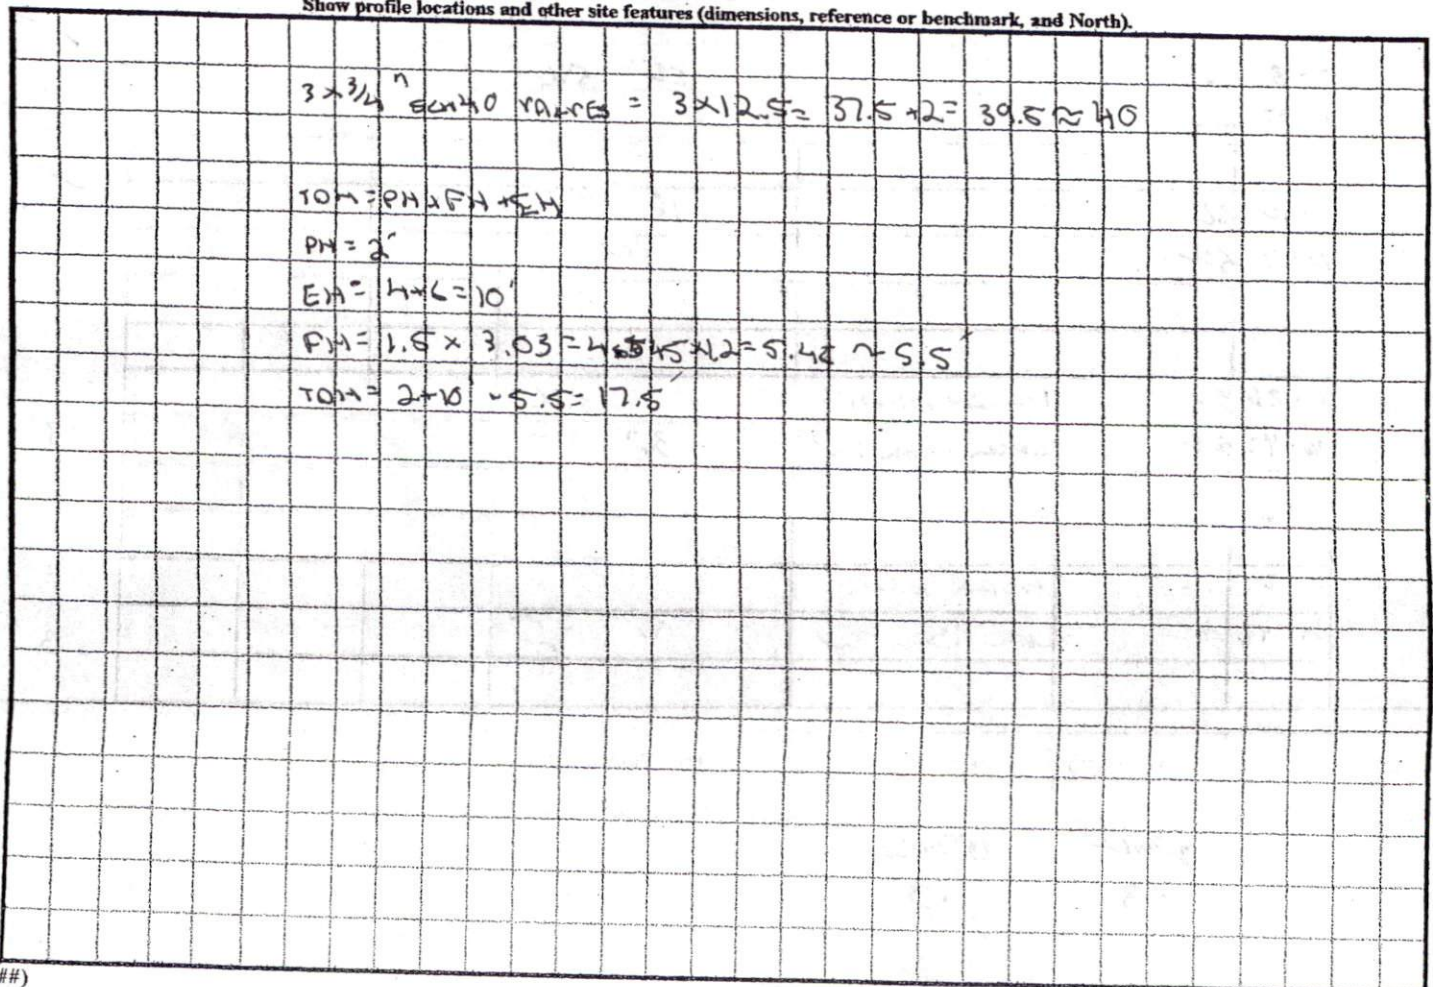 Show profile locations and other site features (dimensions, reference or benchmark, and North).
3 x 3/4" SCH 40 VALVES = 3x12.5= 37.5 +2= 39.5 ≈ 40
TDH = PH + FH + EH
PH = 2'
EH = 4+6 = 10'
FH = 1.5 x 3.03 = 4.545 x 1.2 = 5.45 ~ 5.5'
TDH = 2+10 + 5.5 = 17.5'
##)